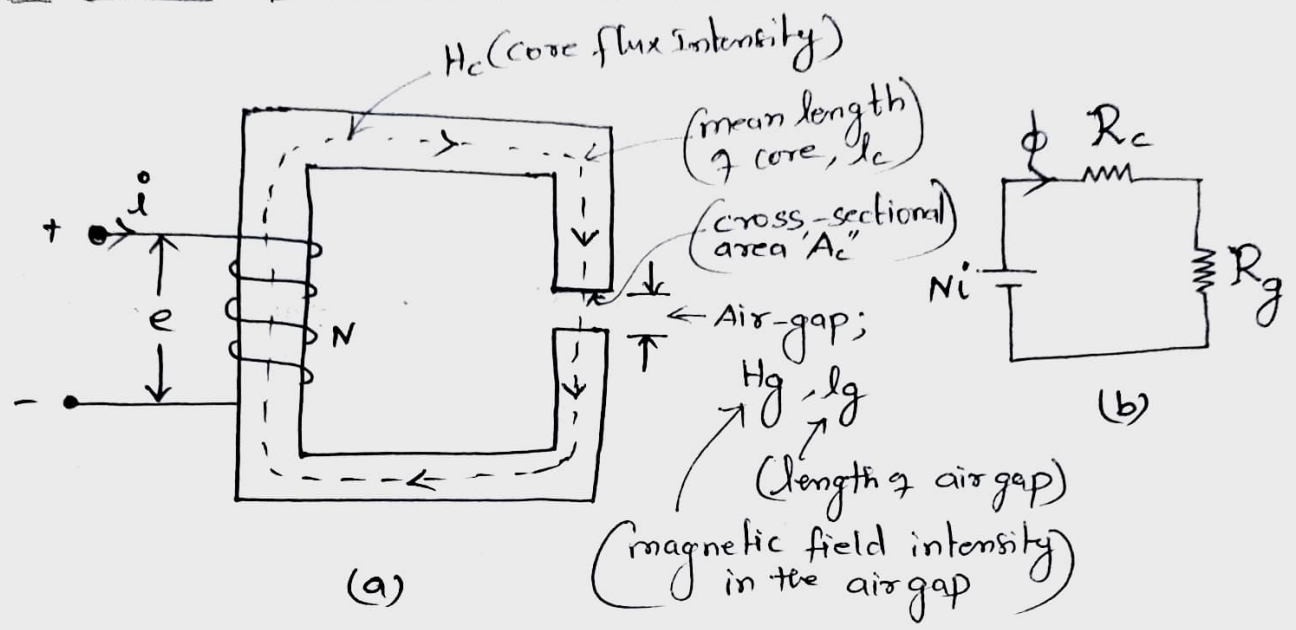 Hc (core flux Intensity)
(mean length
of core, lc)
(cross-sectional)
area "Ac"
i
+
e
N
-
← Air-gap;
Hg, lg
(length of air gap)
(magnetic field intensity
in the air gap)
(a)
ϕ
Rc
Ni
Rg
(b)